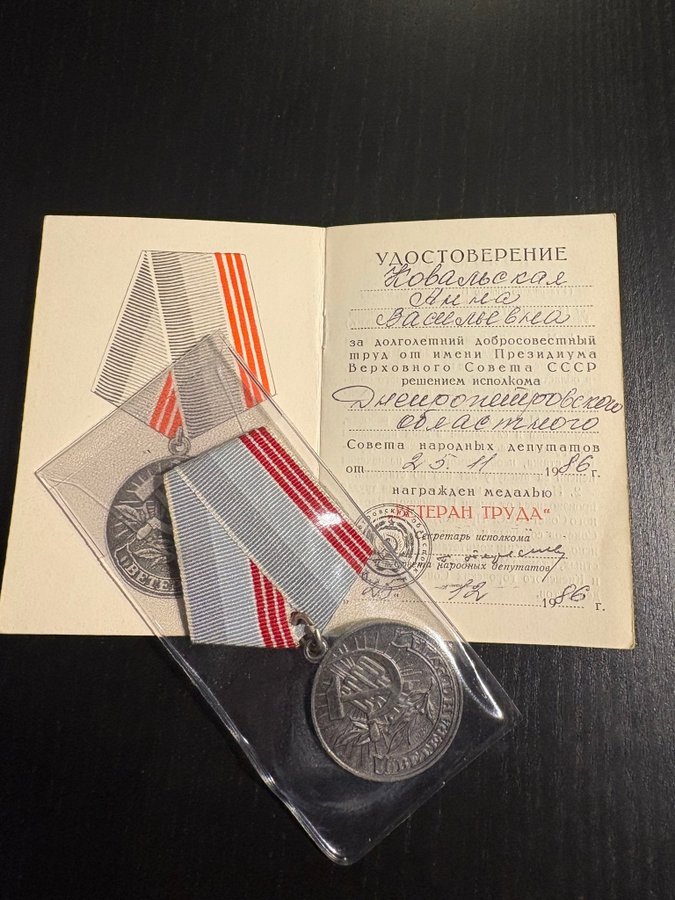 УДОСТОВЕРЕНИЕ
Ковальская
Анна
Васильевна
за долголетний добросовестный
труд от имени Президиума
Верховного Совета СССР
решением исполкома
Днепропетровского
областного
Совета народных депутатов
от 25. 11 1986 г.
награжден медалью
ВЕТЕРАН ТРУДА“
Секретарь исполкома
народных депутатов
12 1986 г.